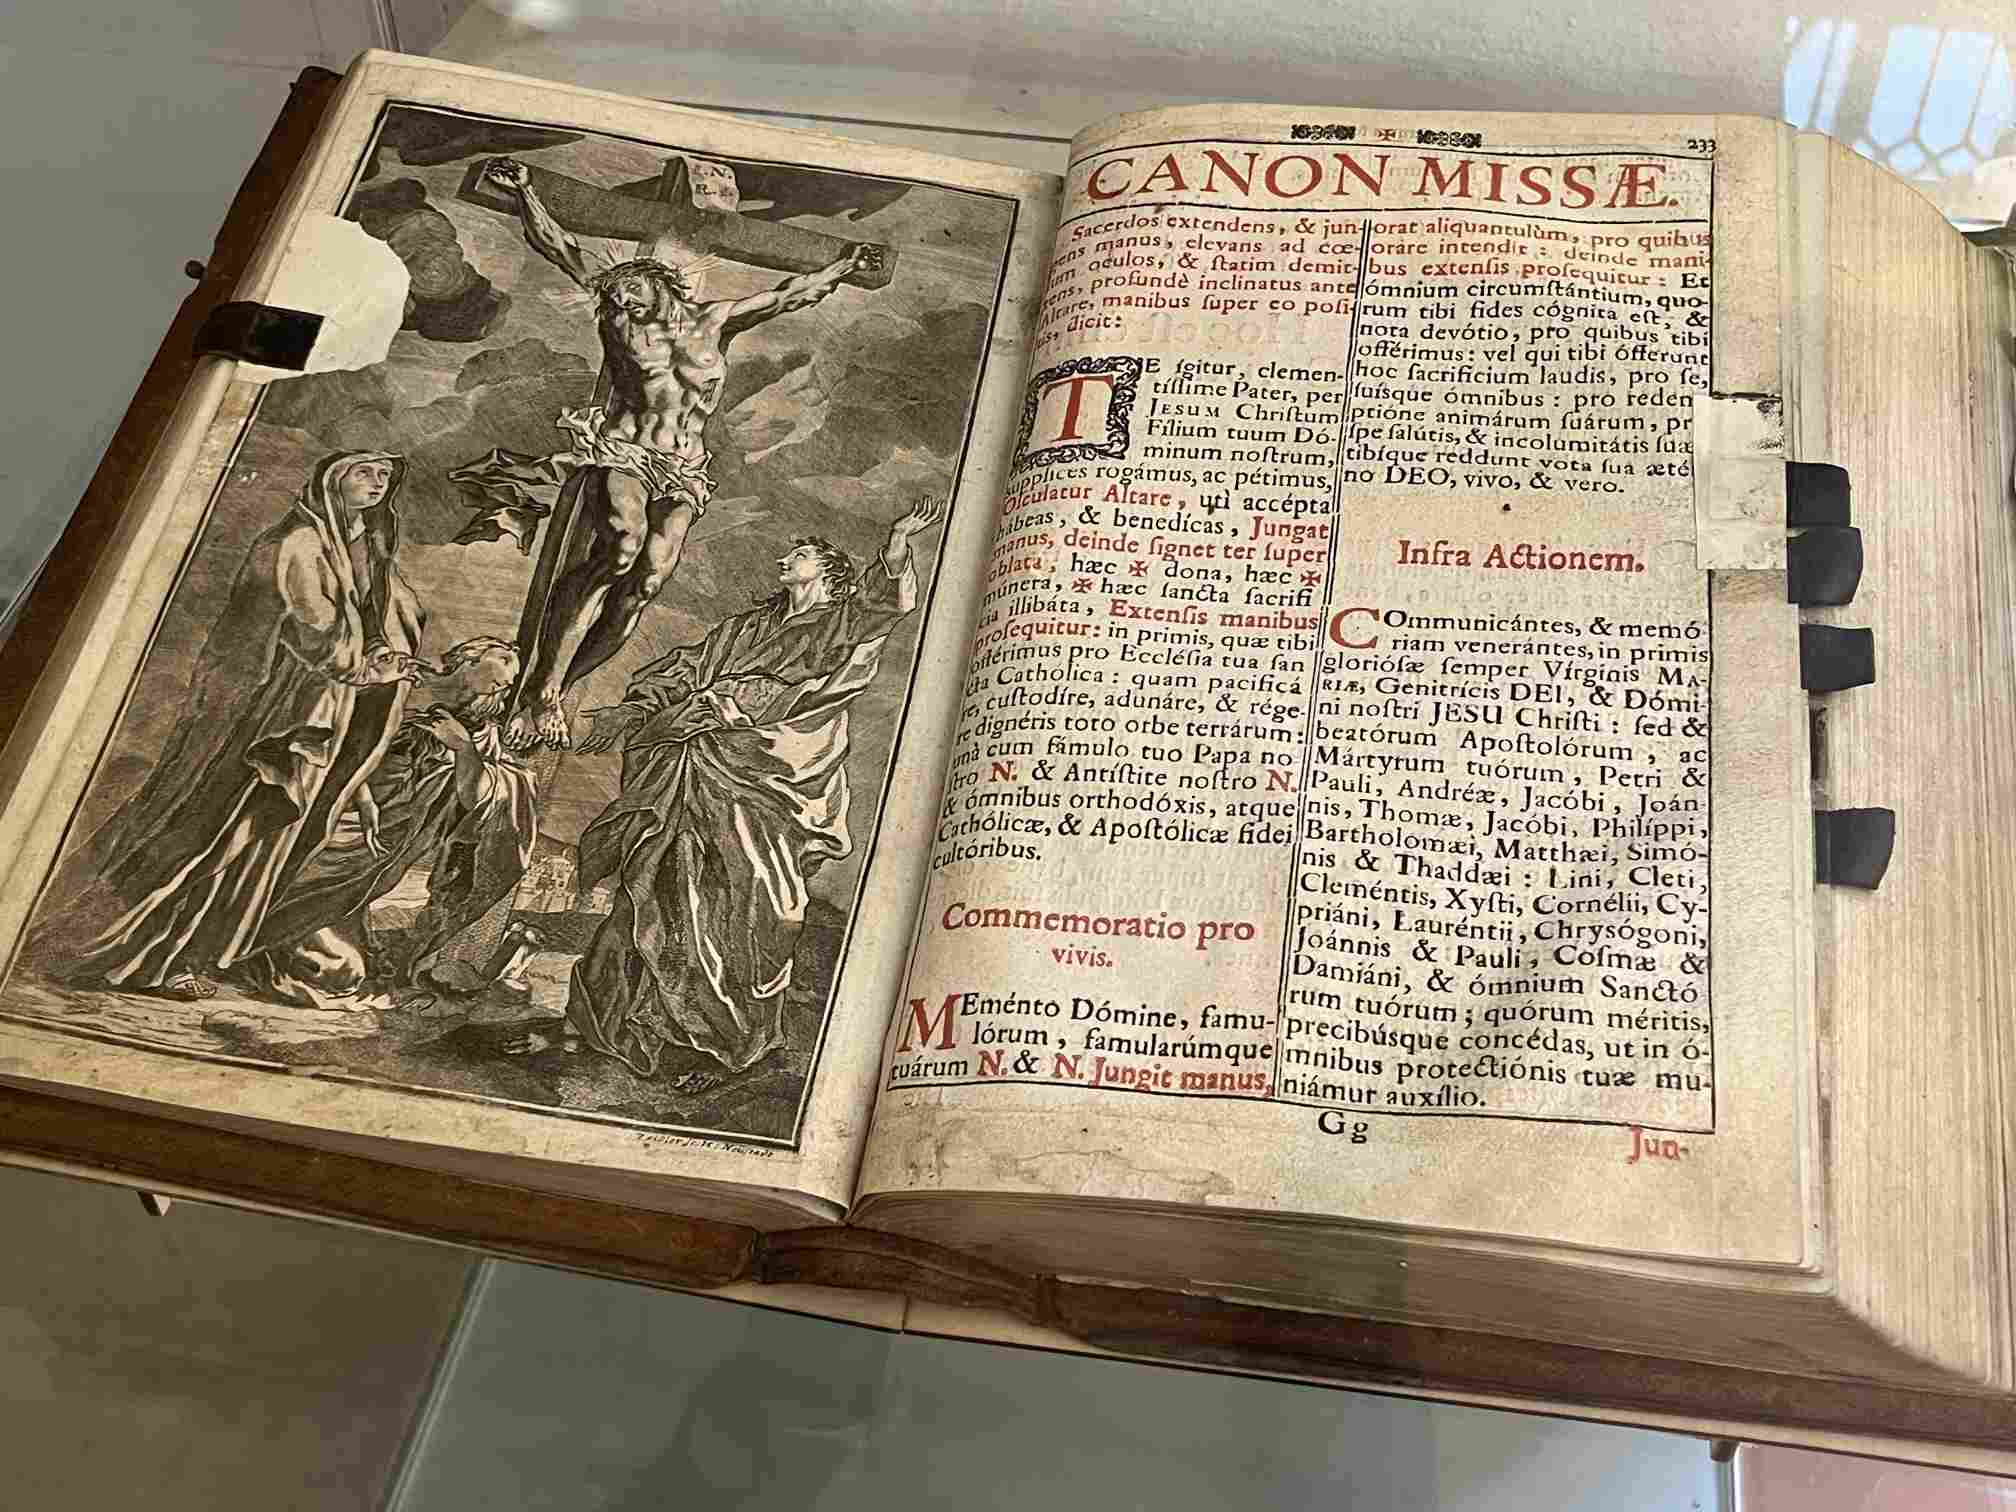 I.N.
R.I.
233
CANON MISSÆ.
Sacerdos extendens, & jun-
gens manus, elevans ad cœ-
lum oculos, & ſtatim demit-
tens, profundè inclinatus ante
Altare, manibus ſuper eo poſi-
tis, dicit:
TE igitur, clemen-
tíſſime Pater, per
JESUM Chriſtum
Fílium tuum Dó-
minum noſtrum,
ſupplices rogámus, ac pétimus,
Oſculatur Altare, utì accépta
hábeas, & benedícas, Jungat
manus, deinde ſignet ter ſuper
oblata, hæc ✠ dona, hæc ✠
múnera, ✠ hæc ſancta ſacrifi
cia illibáta, Extenſis manibus
proſequitur: in primis, quæ tibi
offérimus pro Eccléſia tua ſan
cta Catholica: quam pacificá
re, cuſtodíre, adunáre, & rége-
re dignéris toto orbe terrárum:
unà cum fámulo tuo Papa no
ſtro N. & Antíſtite noſtro N.
& ómnibus orthodóxis, atque
Cathólicæ, & Apoſtólicæ fidei
cultóribus.
Commemoratio pro
vivis.
MEménto Dómine, famu-
lórum, famularúmque
tuárum N. & N. Jungit manus,
orat aliquantulùm, pro quibus
oráre intendit: deinde mani-
bus extenſis proſequitur: Et
ómnium circumſtántium, quo-
rum tibi fides cógnita eſt, &
nota devótio, pro quibus tibi
offérimus: vel qui tibi ófferunt
hoc ſacrificium laudis, pro ſe,
ſuíſque ómnibus: pro redem
ptióne animárum ſuárum, pr
ſpe ſalútis, & incolumitátis ſuæ
tibíque reddunt vota ſua æté
no DEO, vivo, & vero.
Infra Actionem.
COmmunicántes, & memó-
riam venerántes, in primis
glorióſæ ſemper Vírginis MA-
RIÆ, Genitrícis DEI, & Dómi-
ni noſtri JESU Chriſti: ſed &
beatórum Apoſtolórum, ac
Mártyrum tuórum, Petri &
Pauli, Andréæ, Jacóbi, Joán-
nis, Thomæ, Jacóbi, Philíppi,
Bartholomæi, Matthæi, Simó-
nis & Thaddæi: Lini, Cleti,
Cleméntis, Xyſti, Cornélii, Cy-
priáni, Lauréntii, Chryſógoni,
Joánnis & Pauli, Coſmæ &
Damiáni, & ómnium Sanctó
rum tuórum; quórum méritis,
precibúſque concédas, ut in ó-
mnibus protectiónis tuæ mu-
niámur auxílio.
Gg
Jun-